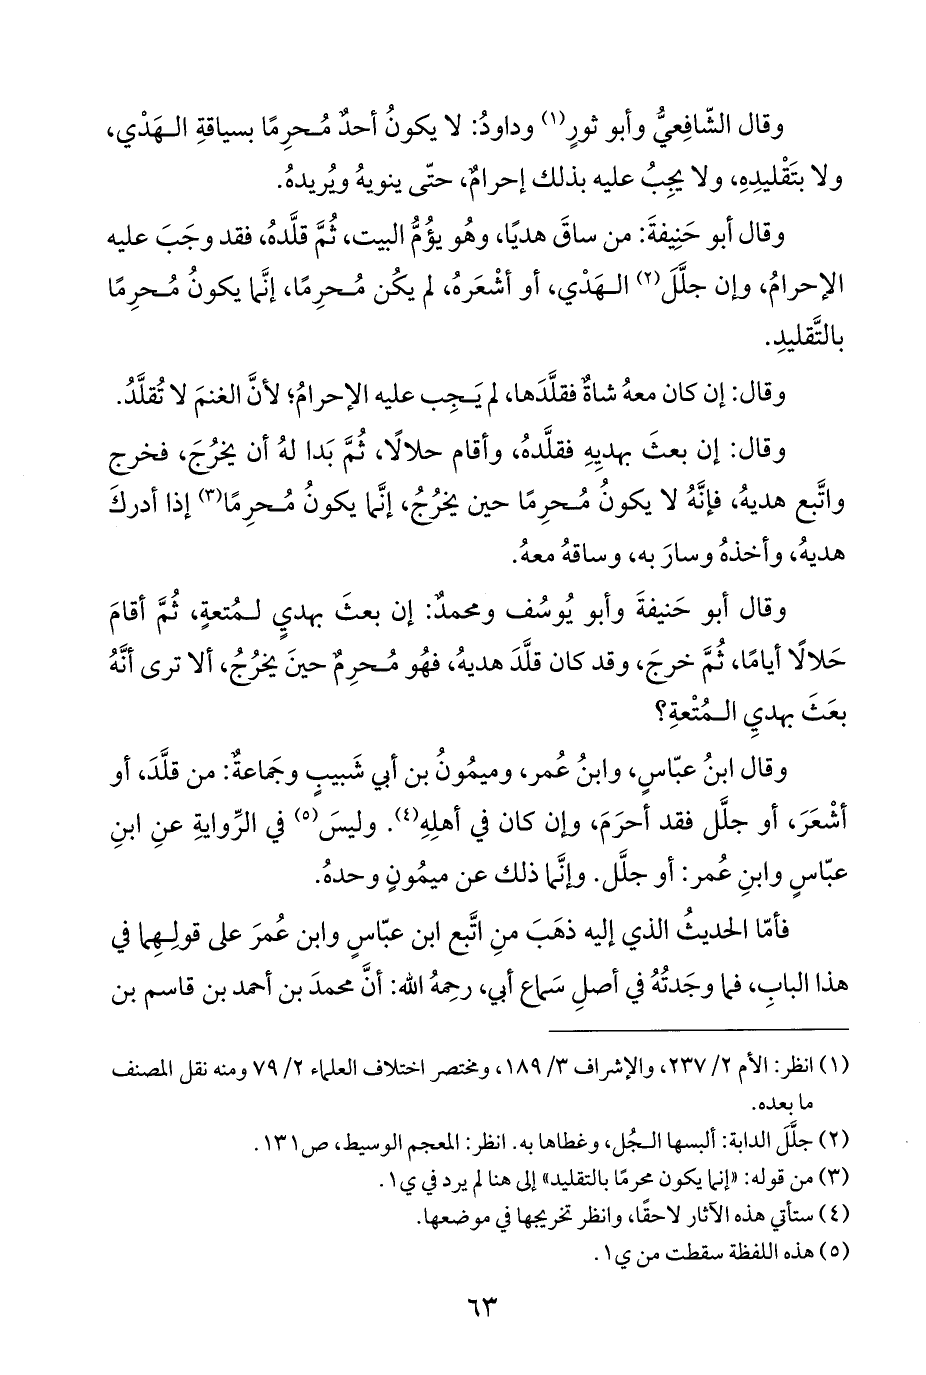 وقال الشّافِعيُّ وأبو ثورٍ(١) وداودُ: لا يكونُ أحدٌ مُحرِمًا بسياقةِ الهَدْي،
ولا بتَقْليدِهِ، ولا يجِبُ عليه بذلك إحرامٌ، حتّى ينويهُ ويُريدهُ.
وقال أبو حَنِيفةَ: من ساقَ هديًا، وهُو يؤُمُّ البيت، ثُمَّ قلَّدهُ، فقد وجَبَ عليه
الإحرامُ، وإن جلَّلَ(٢) الهَدْي، أو أشْعَرهُ، لم يكُن مُحرِمًا، إنَّما يكونُ مُحرِمًا
بالتَّقليدِ.
وقال: إن كان معهُ شاةٌ فقلَّدَها، لم يَجِب عليه الإحرامُ؛ لأنَّ الغنمَ لا تُقلَّدُ.
وقال: إن بعثَ بهديِهِ فقلَّدهُ، وأقام حلالًا، ثُمَّ بَدا لهُ أن يخرُجَ، فخرج
واتَّبع هديهُ، فإنَّهُ لا يكونُ مُحرِمًا حين يخرُجُ، إنَّما يكونُ مُحرِمًا(٣) إذا أدركَ
هديهُ، وأخذهُ وسارَ به، وساقهُ معهُ.
وقال أبو حَنيفةَ وأبو يُوسُف ومحمدٌ: إن بعثَ بهديٍ لمُتعةٍ، ثُمَّ أقامَ
حَلالًا أيامًا، ثُمَّ خرجَ، وقد كان قلَّدَ هديهُ، فهُو مُحرِمٌ حينَ يخرُجُ، ألا ترى أنَّهُ
بعَثَ بهديِ المُتْعةِ؟
وقال ابنُ عبّاسٍ، وابنُ عُمر، وميمُونُ بن أبي شَبيبٍ وجَماعةٌ: من قلَّدَ، أو
أشْعَرَ، أو جلَّل فقد أحرَمَ، وإن كان في أهلِهِ(٤). وليسَ(٥) في الرِّوايةِ عنِ ابنِ
عبّاسٍ وابنِ عُمر: أو جلَّل. وإنَّما ذلك عن ميمُونٍ وحدهُ.
فأمّا الحديثُ الذي إليه ذهَبَ منِ اتَّبع ابن عبّاسٍ وابن عُمرَ على قولِهِما في
هذا البابِ، فما وجَدتُهُ في أصلِ سَماع أبي، رحِمهُ الله: أنَّ محمدَ بن أحمد بن قاسم بن
(١) انظر: الأم ٢/ ٢٣٧، والإشراف ٣/ ١٨٩، ومختصر اختلاف العلماء ٢/ ٧٩ ومنه نقل المصنف
ما بعده.
(٢) جلَّلَ الدابة: ألبسها الجُل، وغطاها به. انظر: المعجم الوسيط، ص١٣١.
(٣) من قوله: «إنما يكون محرمًا بالتقليد» إلى هنا لم يرد في ي١.
(٤) ستأتي هذه الآثار لاحقًا، وانظر تخريجها في موضعها.
(٥) هذه اللفظة سقطت من ي١.
٦٣